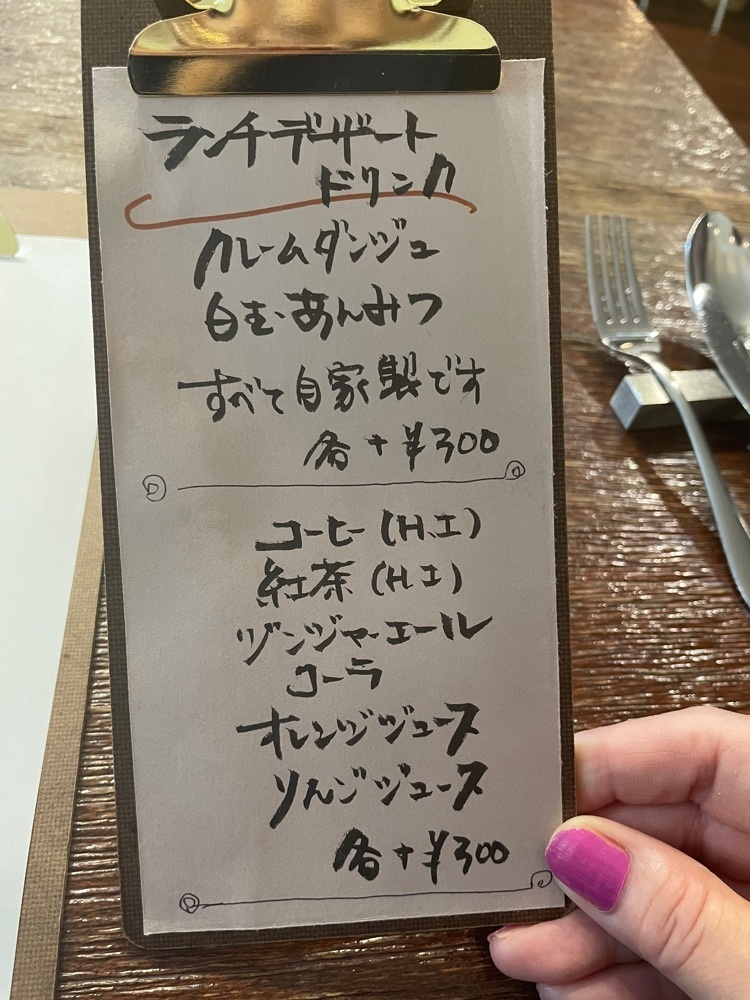 ランチデザート
ドリンク
クレームダンジュ
白玉あんみつ
すべて自家製です
各+¥300
コーヒー(H.I)
紅茶(H.I)
ジンジャーエール
コーラ
オレンジジュース
りんごジュース
各+¥300